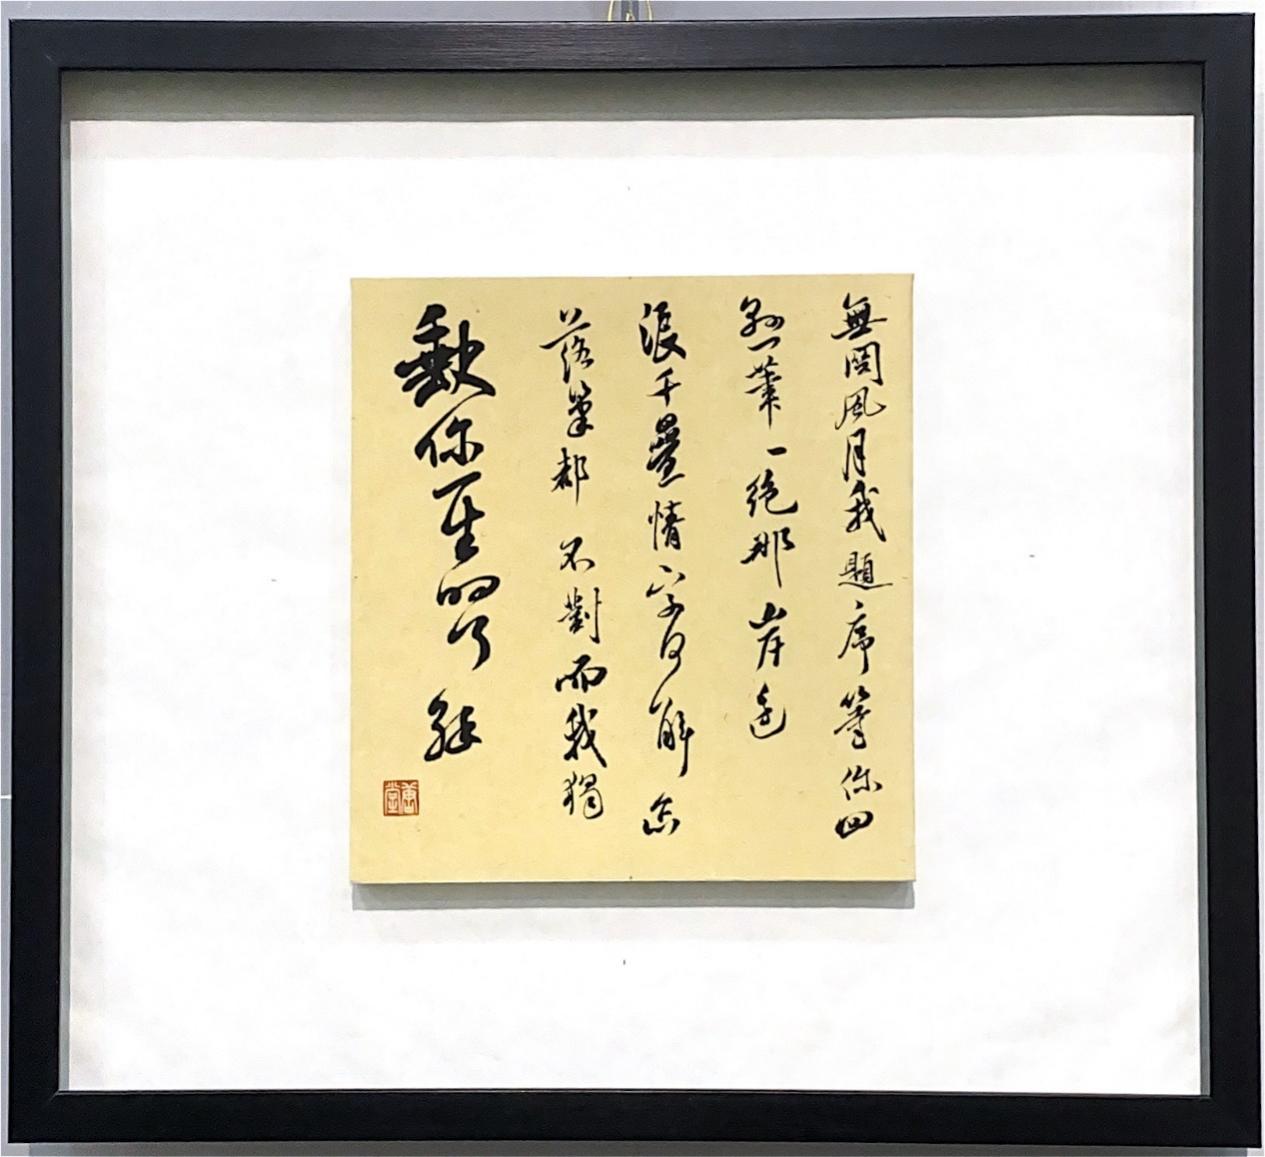 無関風月我題序等你回
懸筆一絕那岸邊
浪千疊情字何解怎
落筆都不對而我獨
缺你一生的了解